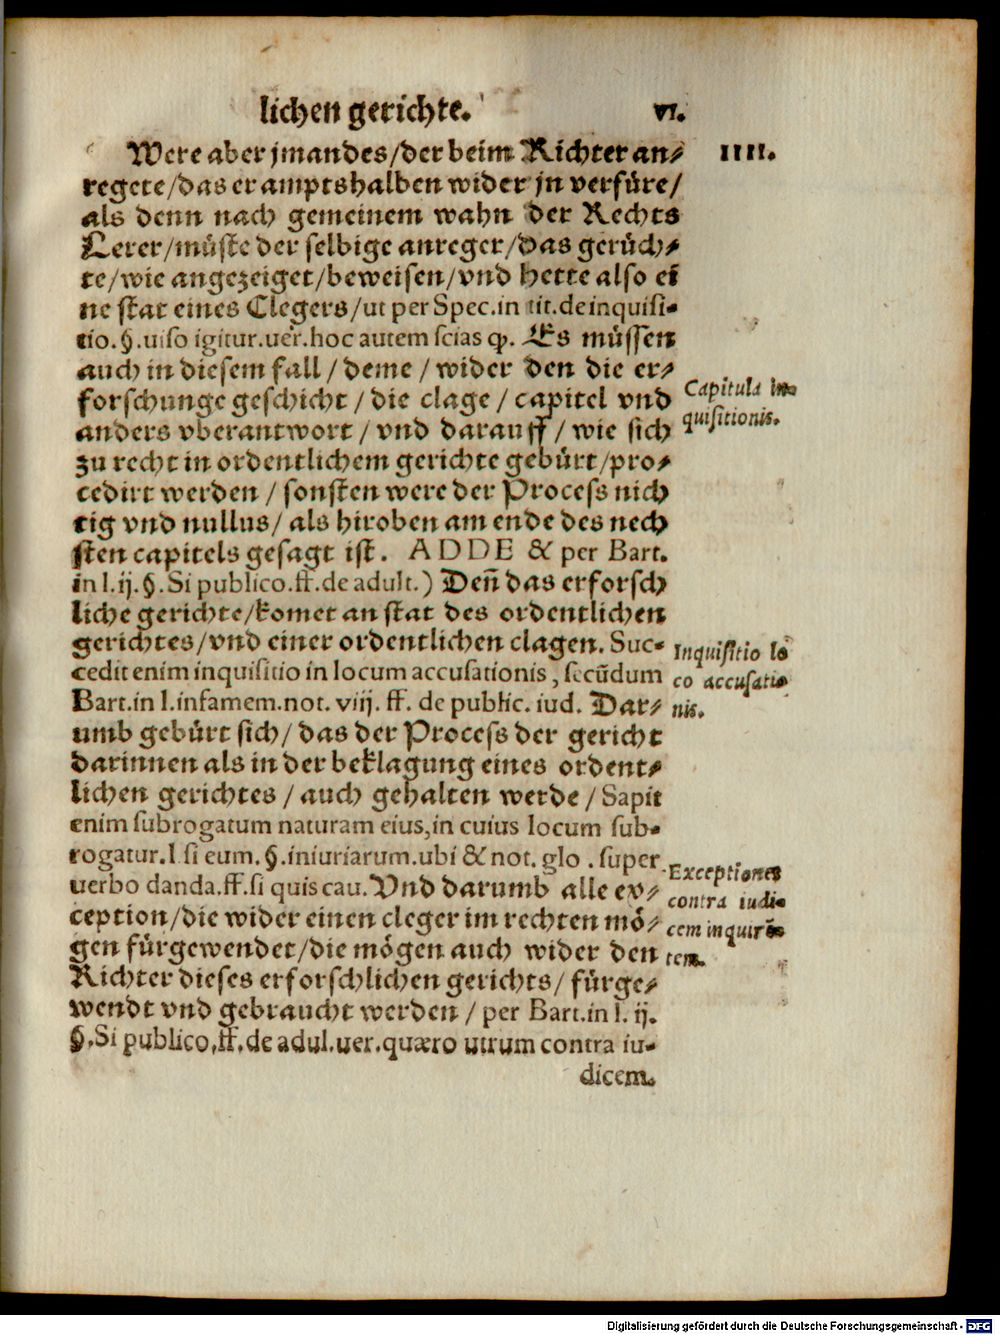 lichen gerichte. vi.
Were aber jmandes/der beim Richter an⸗ IIII.
regete/das er amptshalben wider jn verfüre/
als denn nach gemeinem wahn der Rechts
Lerer/müste der selbige anreger/das gerüch⸗
te/wie angezeiget/beweisen/vnd hette also ei
ne stat eines Clegers/ut per Spec.in tit.de inquisi-
tio.§.uiso igitur.uer.hoc autem scias ꝙ. Es müssen
auch in diesem fall/deme/wider den die er⸗
forschunge geschicht/die clage/capitel vnd
anders vberantwort/vnd darauff/wie sich
zu recht in ordentlichem gerichte gebürt/pro⸗
cedirt werden/sonsten were der Process nich
tig vnd nullus/als hiroben am ende des nech
sten capitels gesagt ist. ADDE & per Bart.
in l.ij.§.Si publico.ff.de adult.) Deñ das erforsch
liche gerichte/komet an stat des ordentlichen
gerichtes/vnd einer ordentlichen clagen. Suc-
cedit enim inquisitio in locum accusationis, secūdum
Bart.in l.infamem.not.viij. ff. de public. iud. Dar⸗
umb gebürt sich/das der Process der gericht
darinnen als in der beklagung eines ordent⸗
lichen gerichtes/auch gehalten werde/Sapit
enim subrogatum naturam eius,in cuius locum sub-
rogatur.l si eum.§.iniuriarum.ubi & not. glo. super
uerbo danda.ff.si quis cau. Vnd darumb alle ex⸗
ception/die wider einen cleger im rechten mö⸗
gen fürgewendet/die mögen auch wider den
Richter dieses erforschlichen gerichts/fürge⸗
wendt vnd gebraucht werden/per Bart.in l. ij.
§.Si publico,ff.de adul.uer.quæro utrum contra iu-
dicem.
Capitula in-
quisitionis.
Inquisitio lo
co accusatio
nis.
Exceptiones
contra iudi-
cem inquirē-
tem.
Digitalisierung gefördert durch die Deutsche Forschungsgemeinschaft - DFG